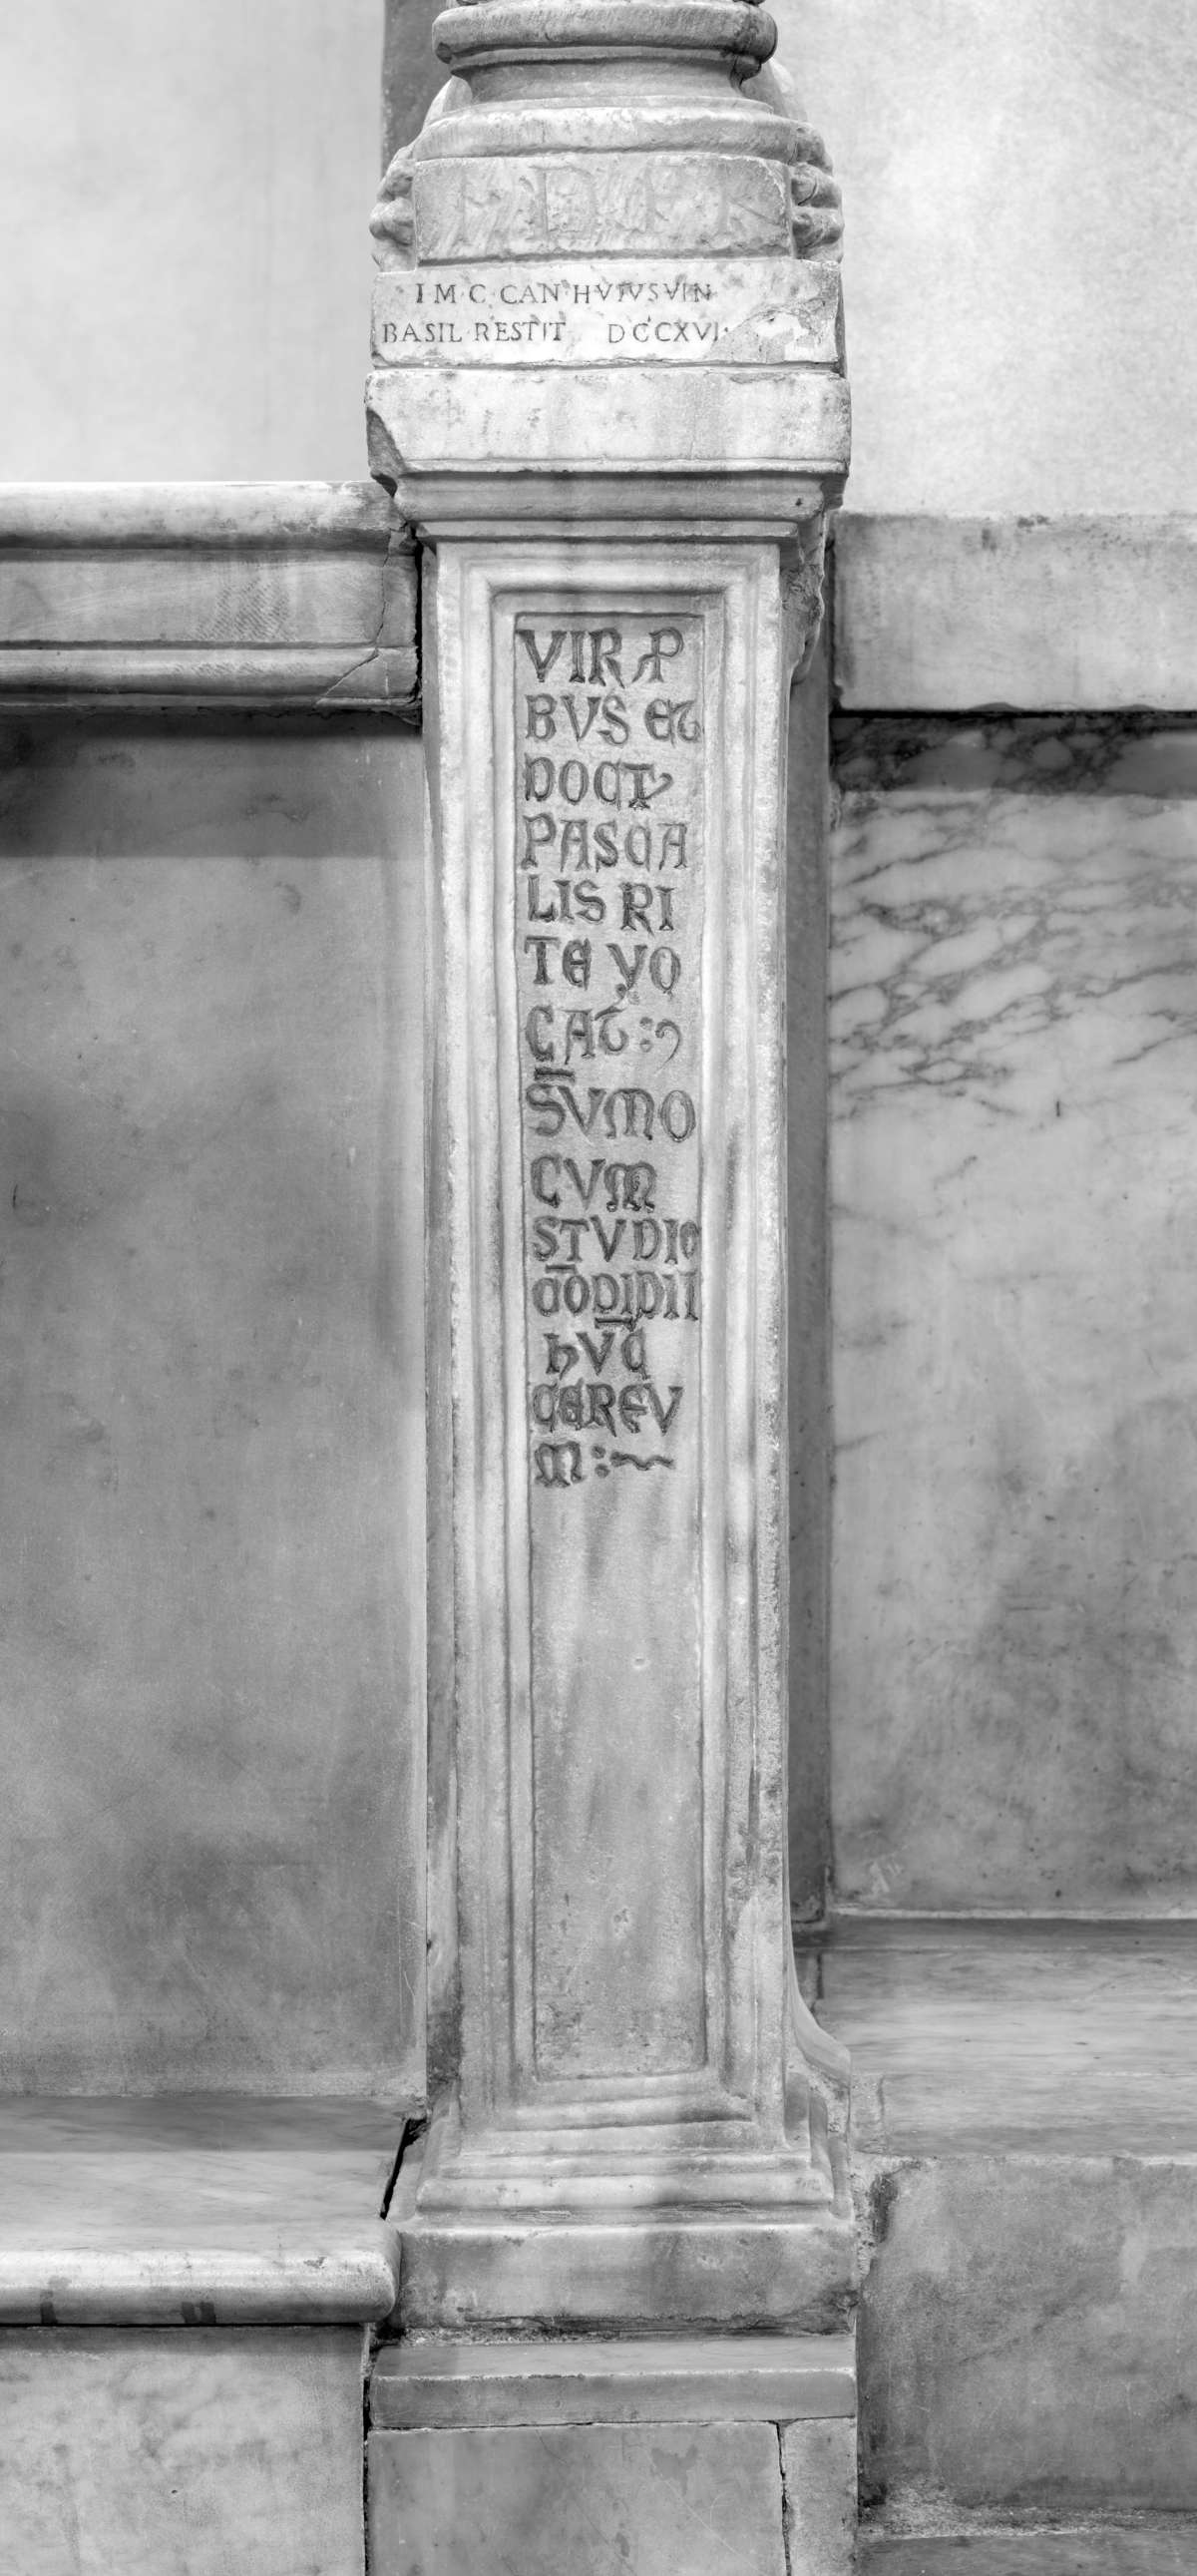 I M C CAN HVIVS VIN
BASIL RESTIT DCCXVI
VIR P
BVS ET
DOCT
PASCA
LIS RI
TE VO
CAT :
SVMO
CVM
STVDIO
CODIDII
hVC
CEREV
M :~